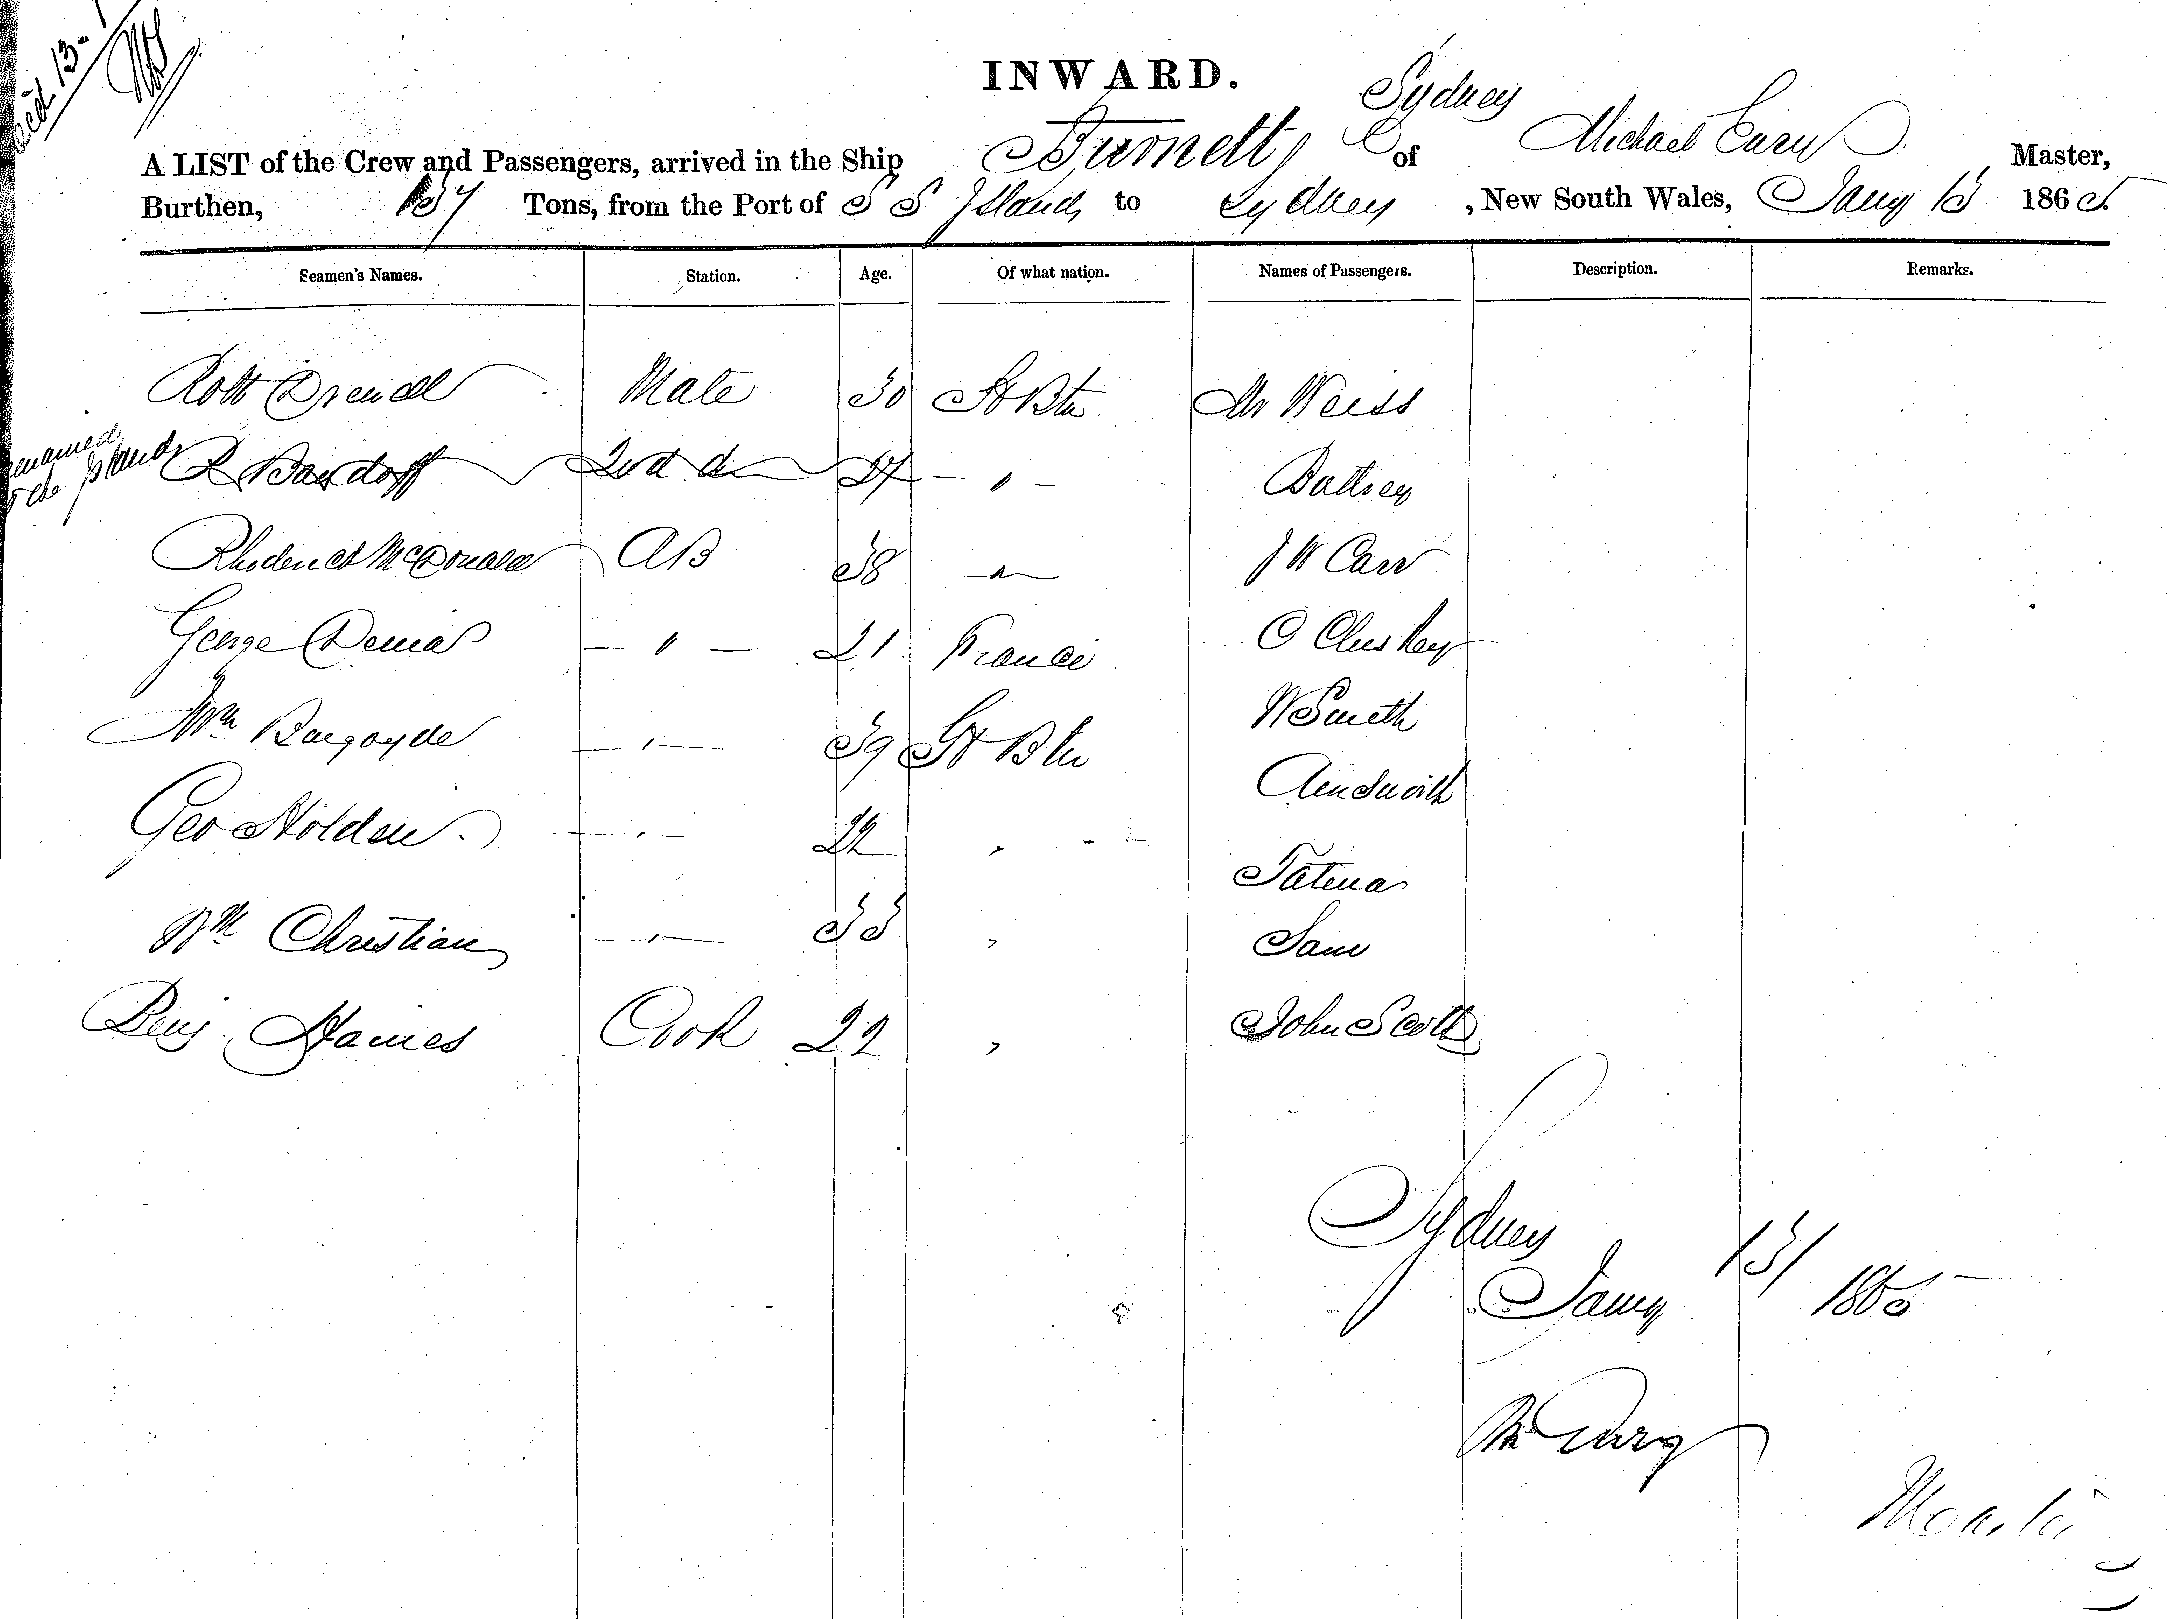 INWARD.
Sydney
A LIST of the Crew and Passengers, arrived in the Ship Burnett of Michael Master,
Burthen, 137 Tons, from the Port of S S Islands to Sydney, New South Wales, Jany 13 1865
Seamen's Names. Station. Age. Of what nation. Names of Passengers. Description. Remarks.
Robt Mate 30 Gt Btn Mr Weiss
the Islands
R Bardorff 2nd do 27 - " - Battrey
Rhoderick McDonald AB 38 - " - J W Carr
George - " - 21 France O Cluskey
Wm Burgoyde - " - 39 Gt Btn W Smith
Geo Holden - " - 22 " Aindsworth
Wm Christian - " - 33 " Tatena
Sam
Benj Haines Cook 22 " John Scott
Sydney
Jany 13/ 1865
Master